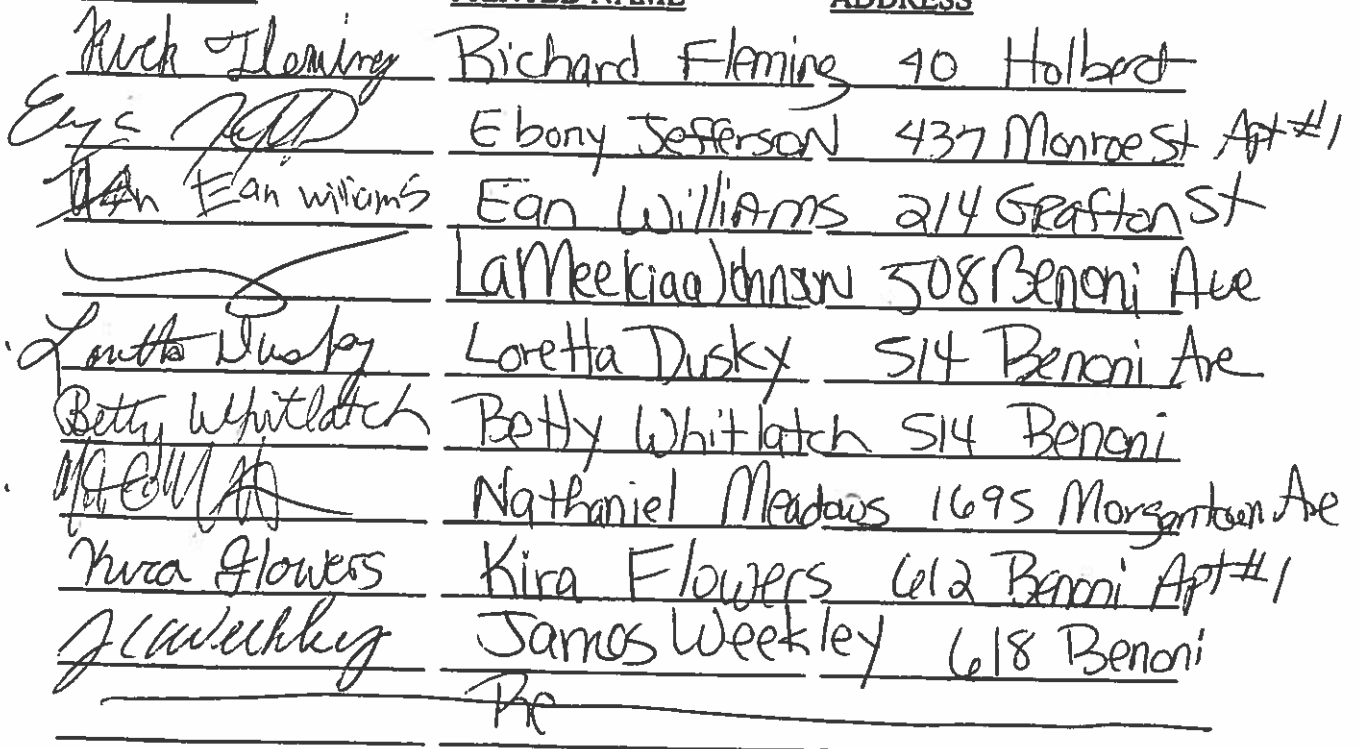 PRINTED NAME ADDRESS
Rick Fleming Richard Fleming 40 Holbert
Ebony Jefferson 437 Monroe St Apt #1
Ean williams Ean Williams 214 Grafton St
LaMeekiaa Johnson 508 Benoni Ave
Loretta Dusky Loretta Dusky 514 Benoni Ave
Betty Whitlatch Betty Whitlatch 514 Benoni
Nathaniel Meadows 1695 Morgantown Ave
Kira Flowers Kira Flowers 612 Benoni Apt #1
James Weekley 618 Benoni